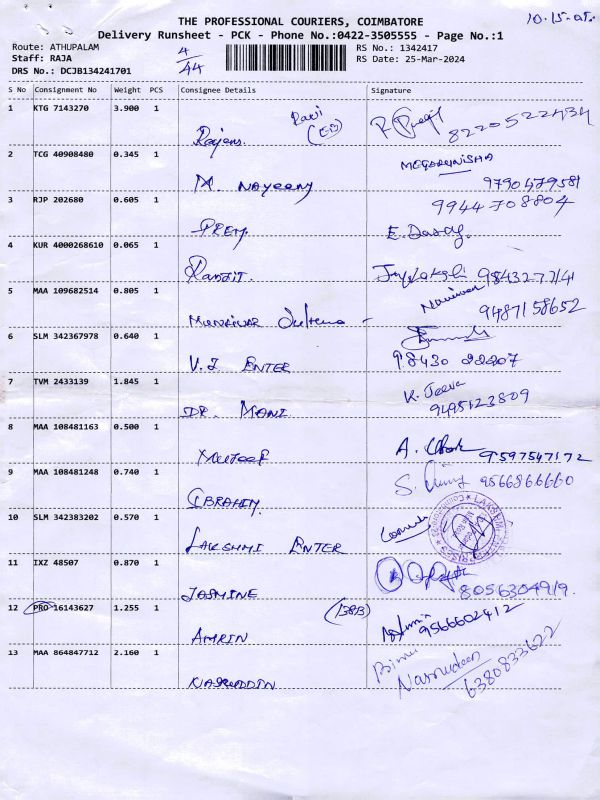 10-15-
THE PROFESSIONAL COURIERS, COIMBATORE
Delivery Runsheet - PCK - Phone No.:0422-3505555 - Page No.:1
Route: ATHUPALAM
Staff: RAJA
DRS No.: DCJB134241701
4/44
RS No.: 1342417
RS Date: 25-Mar-2024
S No Consignment No Weight PCS Consignee Details Signature
1 KTG 7143270 3.900 1
Ravi
8220522434
2 TCG 40908480 0.345 1
M. NAYEEM
9790479581
3 RJP 202680 0.605 1
9944708804
PREM E. Dasaf.
4 KUR 4000268610 0.065 1
Ranjit. 9843277141
5 MAA 109682514 0.805 1
9487158652
Munawar Sultana -
6 SLM 342367978 0.640 1
V.J ENTER 98430 22207
7 TVM 2433139 1.845 1
K. Jeeva
DR. MANI 9495123809
8 MAA 108481163 0.500 1
MUJEEP A. 9597547172
9 MAA 108481248 0.740 1
IBRAHIM. S. 9566866660
10 SLM 342383202 0.570 1
LAKSHMI ENTER
11 IXZ 48507 0.870 1
JASMINE 8056304919.
12 PRO 16143627 1.255 1
(138B)
AMRIN 9566602412
13 MAA 864847712 2.160 1
Binu
NASRUDDIN Nasrudeen 6380833622